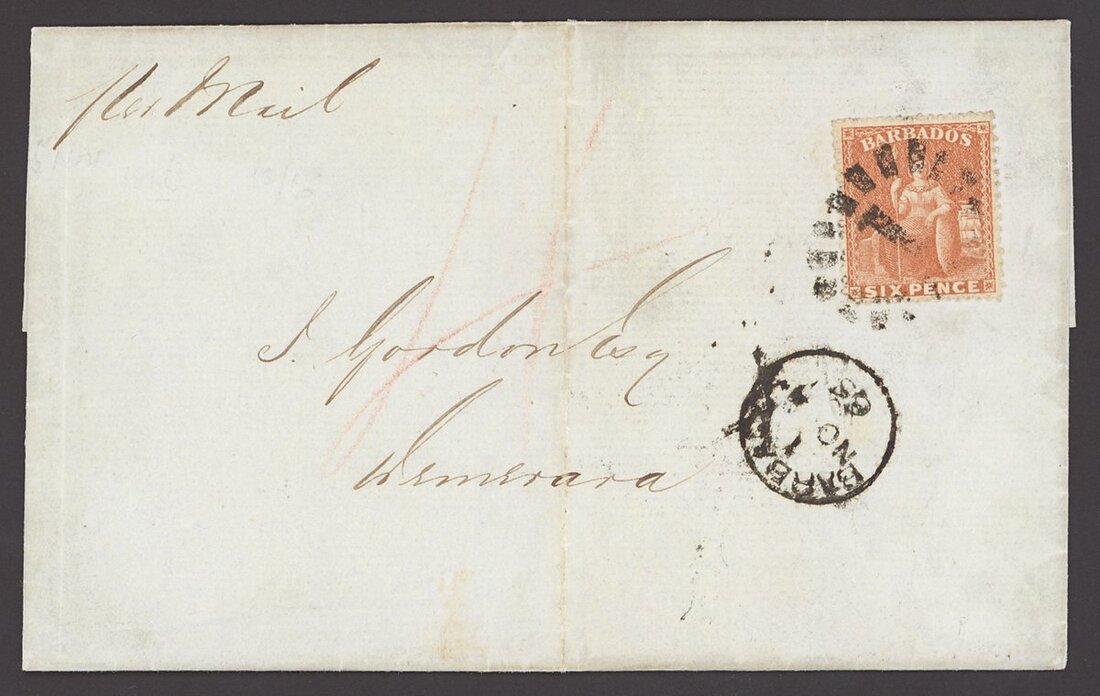 per Mail
BARBADOS
SIX PENCE
J. Gordon Esq
Demerara
BARBA
1
NO